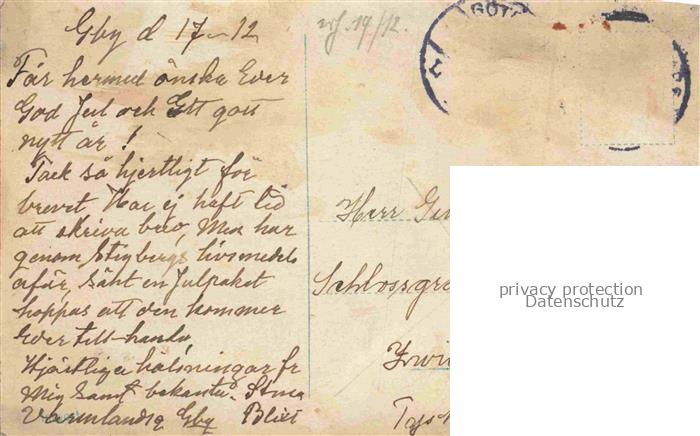 Gby d 17-12
Får hermed önska Eder
God Jul och Ett gott
nytt år!
Tack så hjertligt för
brevet Har ej haft tid
att skriva brev, Men har
genom Stigbergs livsmedels
afär, sänt en Julpaket
hoppas att den kommer
Eder till handa,
Hjärtliga hälsningar fr
Mig samt bekanta.
Gby
19/12
GÖT
Herr
Schlossgra
privacy protection
Datenschutz